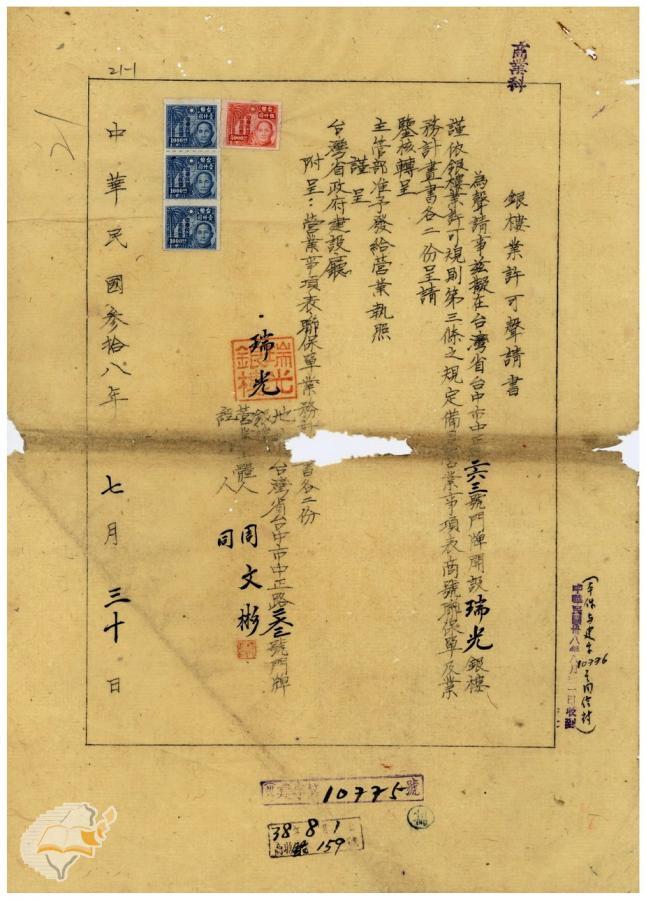 商業科
銀樓業許可聲請書
為聲請事茲擬在台灣省台中市中正 二六三號門牌開設瑞光銀樓
謹依銀樓業許可規則第三條之規定備 業事項表商號聯保單及業
務計畫書各二份呈請
鑒核轉呈
主管部准予發給營業執照
謹呈
台灣省政府建設廳
附呈：營業事項表聯保單業務計 書各二份
瑞光
瑞光銀樓
地 台灣省台中市中正路二六三號門牌
人 周文彬
人 同
中華民國參拾八年 七月 三十日
21-1
21
5000
1000
1000
1000
中華民國卅八年八月 一日收
10775號
38年8月1
159